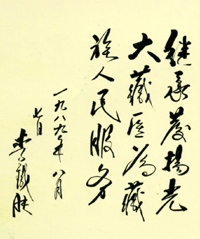 继承發揚光
大藏医為藏
族人民服务
一九八九年八月
七日
李